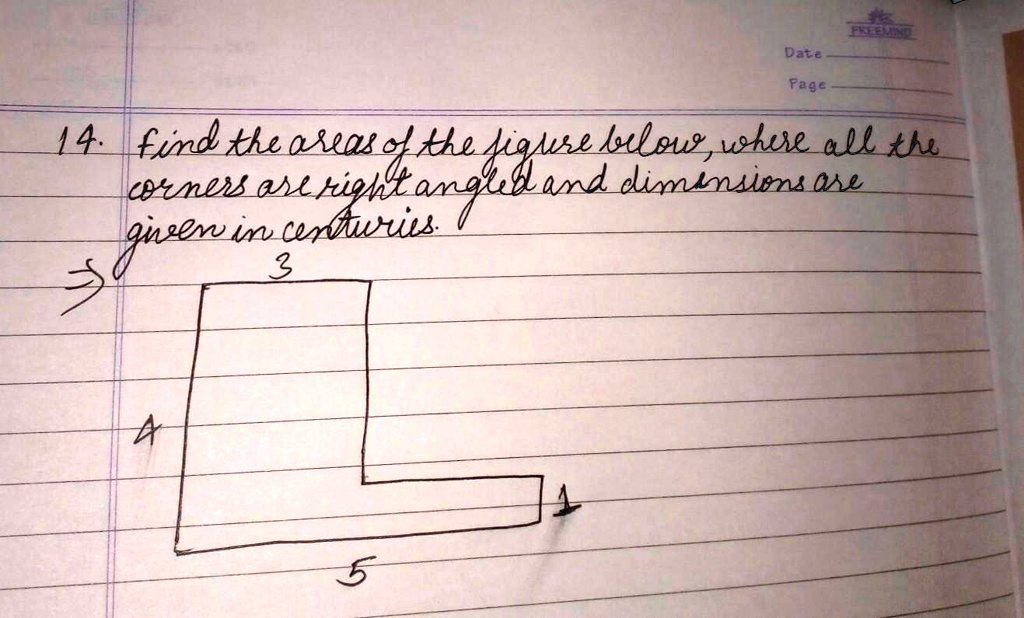 FREEMIND
Date
Page
14. find the areas of the figure below, where all the
corners are right angled and dimensions are
given in centuries.
⇒
3
4
1
5